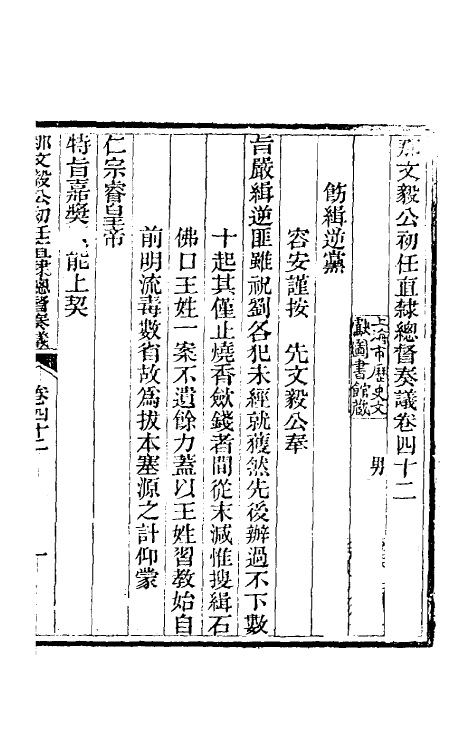 那文毅公初任直隸總督奏議卷四十二
上海市歷史文
獻圖書館藏
男
飭緝逆黨
容安謹按　先文毅公奉
旨嚴緝逆匪雖祝劉各犯未經就獲然先後辦過不下數
十起其僅止燒香斂錢者間從末減惟搜緝石
佛口王姓一案不遺餘力蓋以王姓習教始自
前明流毒數省故為拔本塞源之計仰蒙
仁宗睿皇帝
特旨嘉獎　能上契
那文毅公初任直隸總督奏議　卷四十二　一